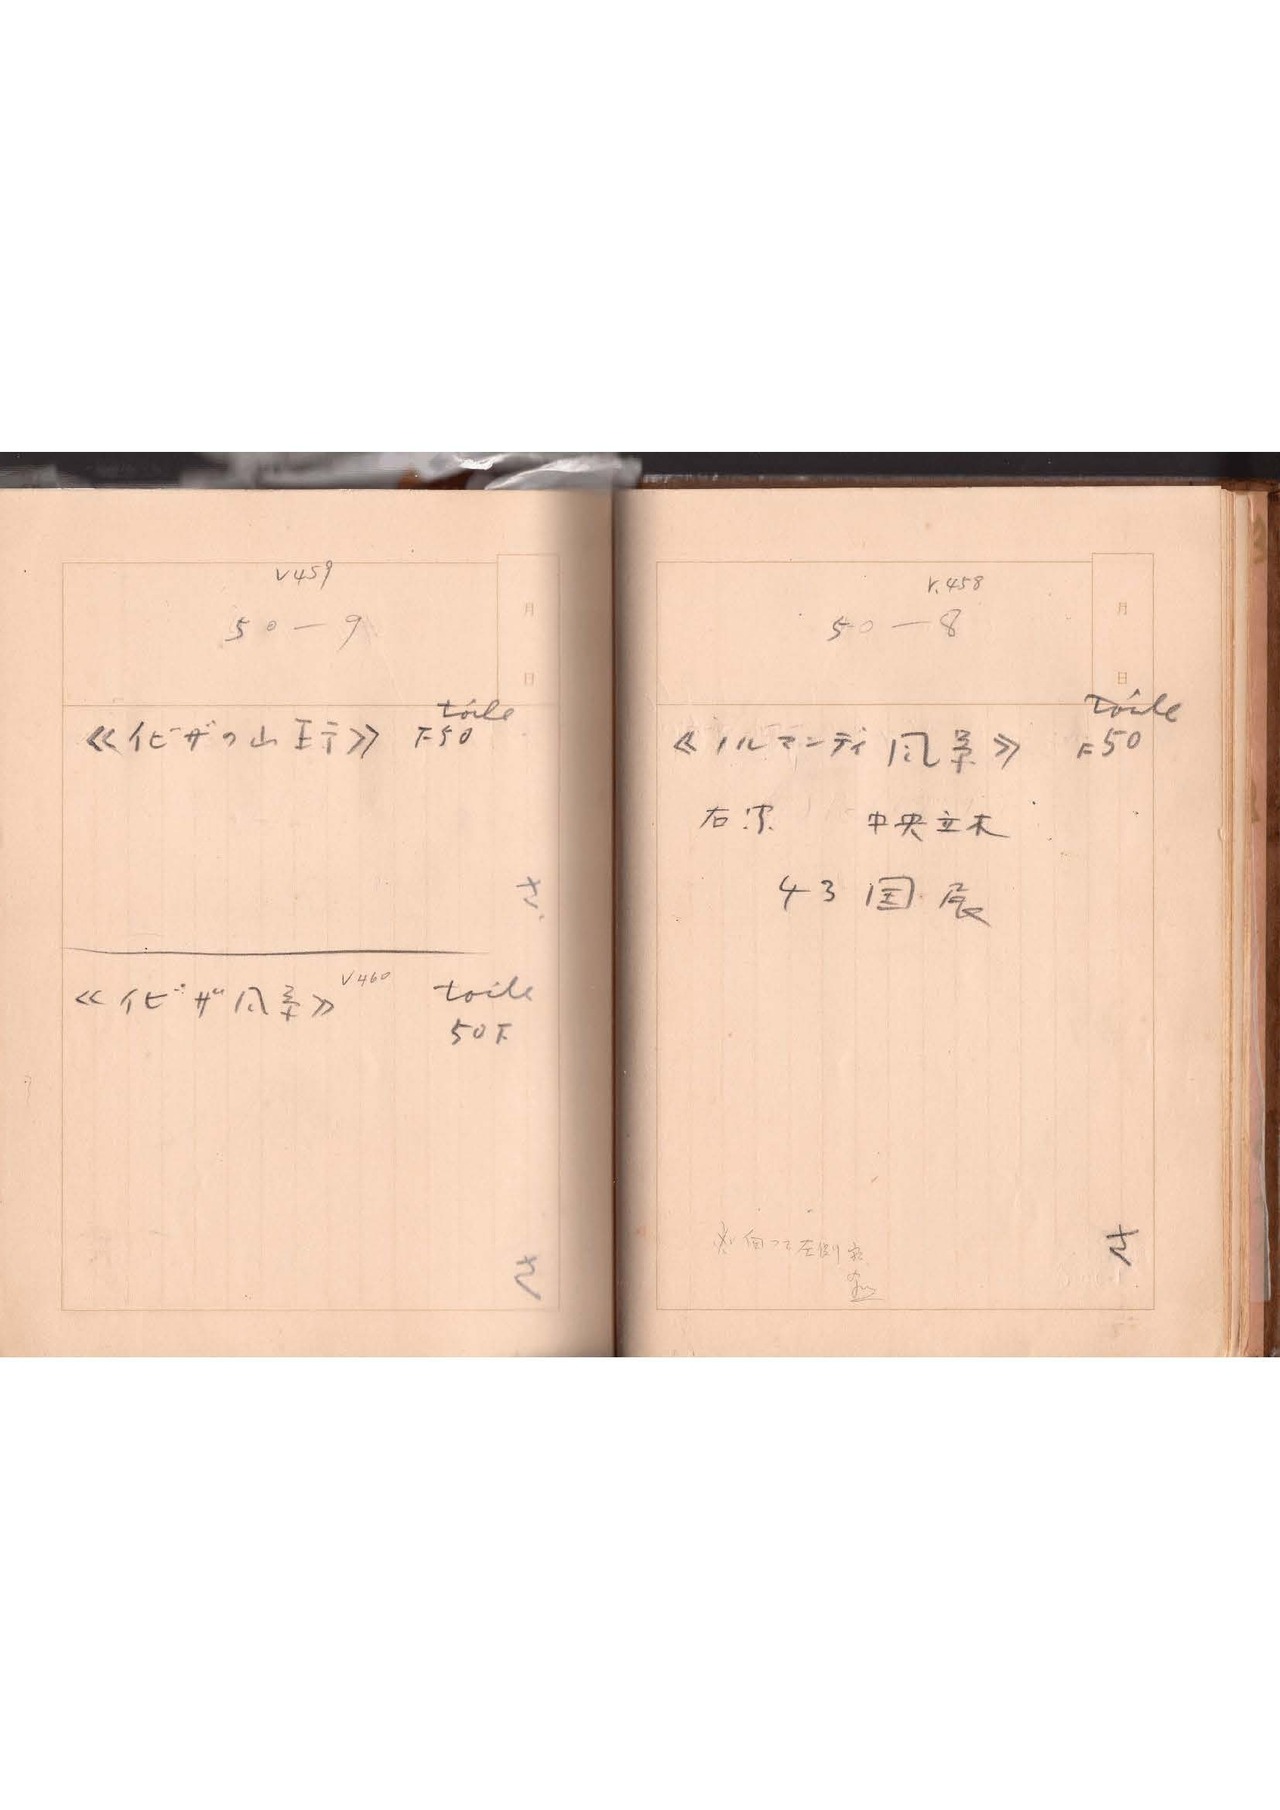 V459
50-9
月
日
toile
≪イビザの山荘≫ F50
さ
≪イビザ風景≫ V460 toile
50F
さ
V.458
50-8
月
日
toile
≪ノルマンディ風景≫ F50
右 中央立木
43国展
向って左側
さ